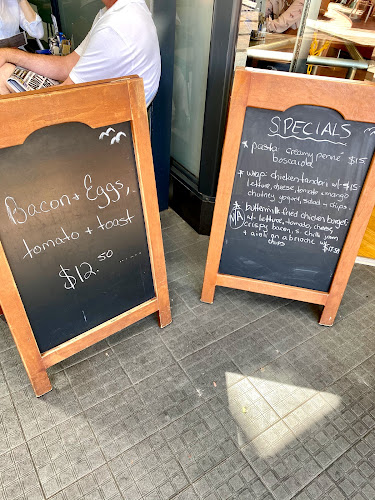 Bacon + Eggs,
tomato + toast
$12.50
SPECIALS
* pasta: creamy penne $15
boscaiola
* wrap: chicken tandori w/ $15
lettuce, cheese, tomato + mango
chutney yogurt, salad + chips.
* buttermilk fried chicken burger
N/A w/- lettuce, tomato, cheese,
crispy bacon, s. chilli
+ aioli on a brioche w/
chips $17.50